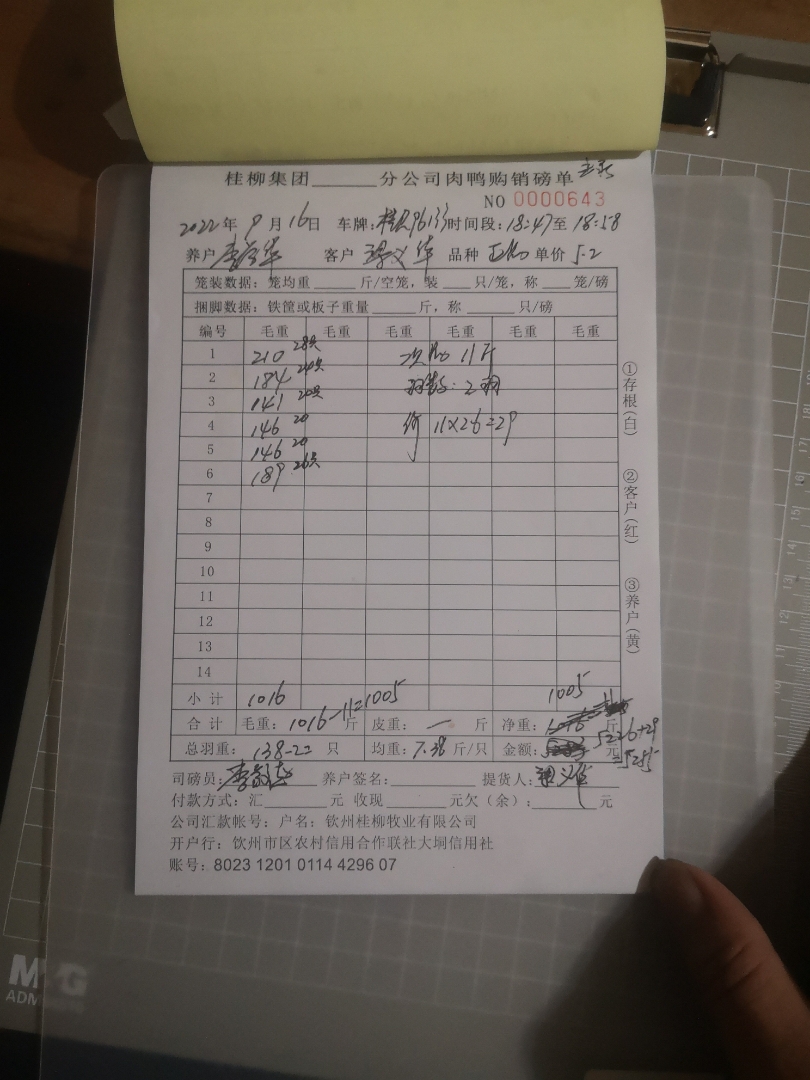 桂柳集团______分公司肉鸭购销磅单
NO 0000643
2022年 9月 16日 车牌: 96133 时间段: 18:47至 18:58
养户 李 华 客户 义华 品种 单价 5.2
笼装数据: 笼均重______斤/空笼, 装____只/笼, 称____笼/磅
捆脚数据: 铁筐或板子重量______斤, 称______只/磅
编号 毛重 毛重 毛重 毛重 毛重 毛重
1 210 28只 次 11斤
2 184 24只 羽数: 2羽
3 141 20只
4 146 20 价 11×2.6=29
5 146 20
6 189 26只
7
8
9
10
11
12
13
14
小计 1016 1005
合计 毛重: 1016-11=1005 斤 皮重: 一 斤 净重: 斤
总羽重: 138-2= 只 均重: 7.38 斤/只 金额: 元 5226+29
=5255
司磅员: 李 养户签名:________ 提货人: 义华
付款方式: 汇________元 收现________元欠(余): ________元
公司汇款帐号: 户名: 钦州桂柳牧业有限公司
开户行: 钦州市区农村信用合作联社大垌信用社
账号: 8023 1201 0114 4296 07
①存根(白)
②客户(红)
③养户(黄)
M&G